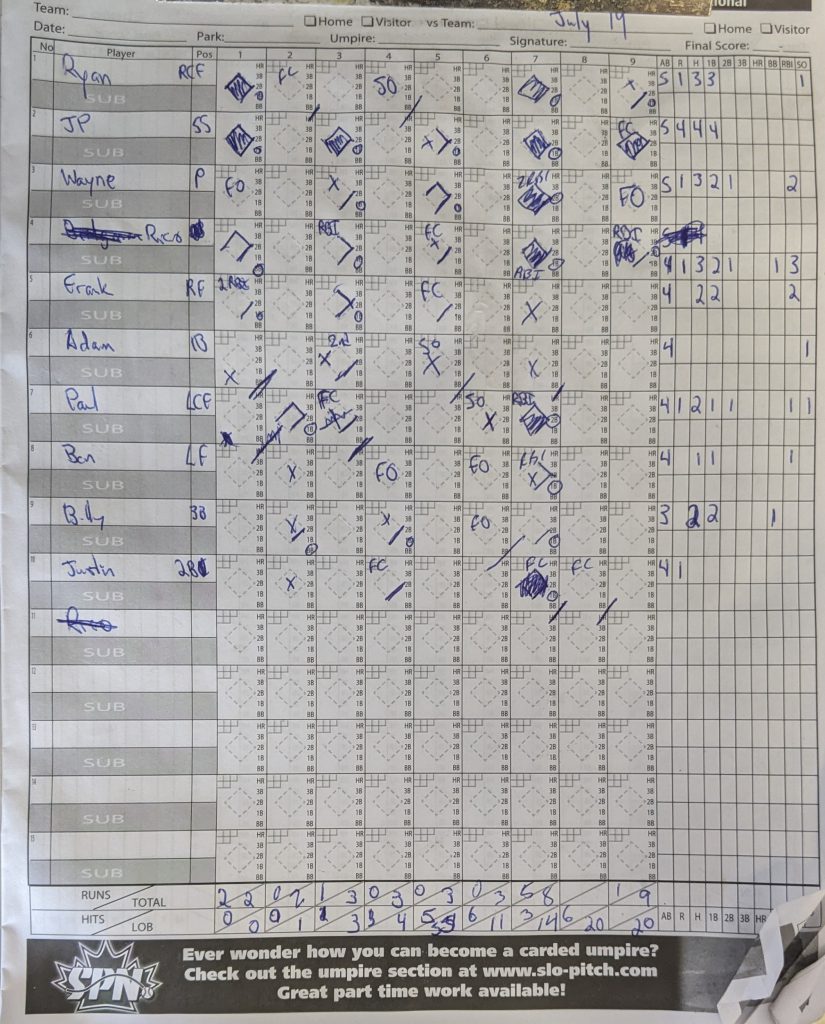 ional
Team: July 19
Home Visitor vs Team: Home Visitor
Date: Park: Umpire: Signature: Final Score:
No Player Pos 1 2 3 4 5 6 7 8 9 AB R H 1B 2B 3B HR BB RBI SO
1 Ryan RCF FC SO 5 1 3 3 1
SUB
2 JP SS FC 5 4 4 4
SUB
3 Wayne P FO FO 5 1 3 2 1 2
SUB
4 Rico RBI FC RBI RBI 4 1 3 2 1 1 3
SUB
5 Frank RF 2 RBI FC 4 2 2 2
SUB
6 Adam 1B 2nd SO 4 1
SUB
7 Paul LCF FC SO RBI 4 1 2 1 1 1 1
SUB
8 Ben LF FO FO RBI 4 1 1 1
SUB
9 Billy 3B FO 3 2 2 1
SUB
10 Justin 2B FC FC FC 4 1
SUB
11 Rico
SUB
12
SUB
13
SUB
14
SUB
15
SUB
RUNS TOTAL 2 2 0 2 1 3 0 3 0 3 0 3 5 8 1 9
HITS LOB 0 0 0 1 3 3 4 5 6 11 3 14 6 20 20 AB R H 1B 2B 3B HR
Ever wonder how you can become a carded umpire?
Check out the umpire section at www.slo-pitch.com
Great part time work available!
SPN